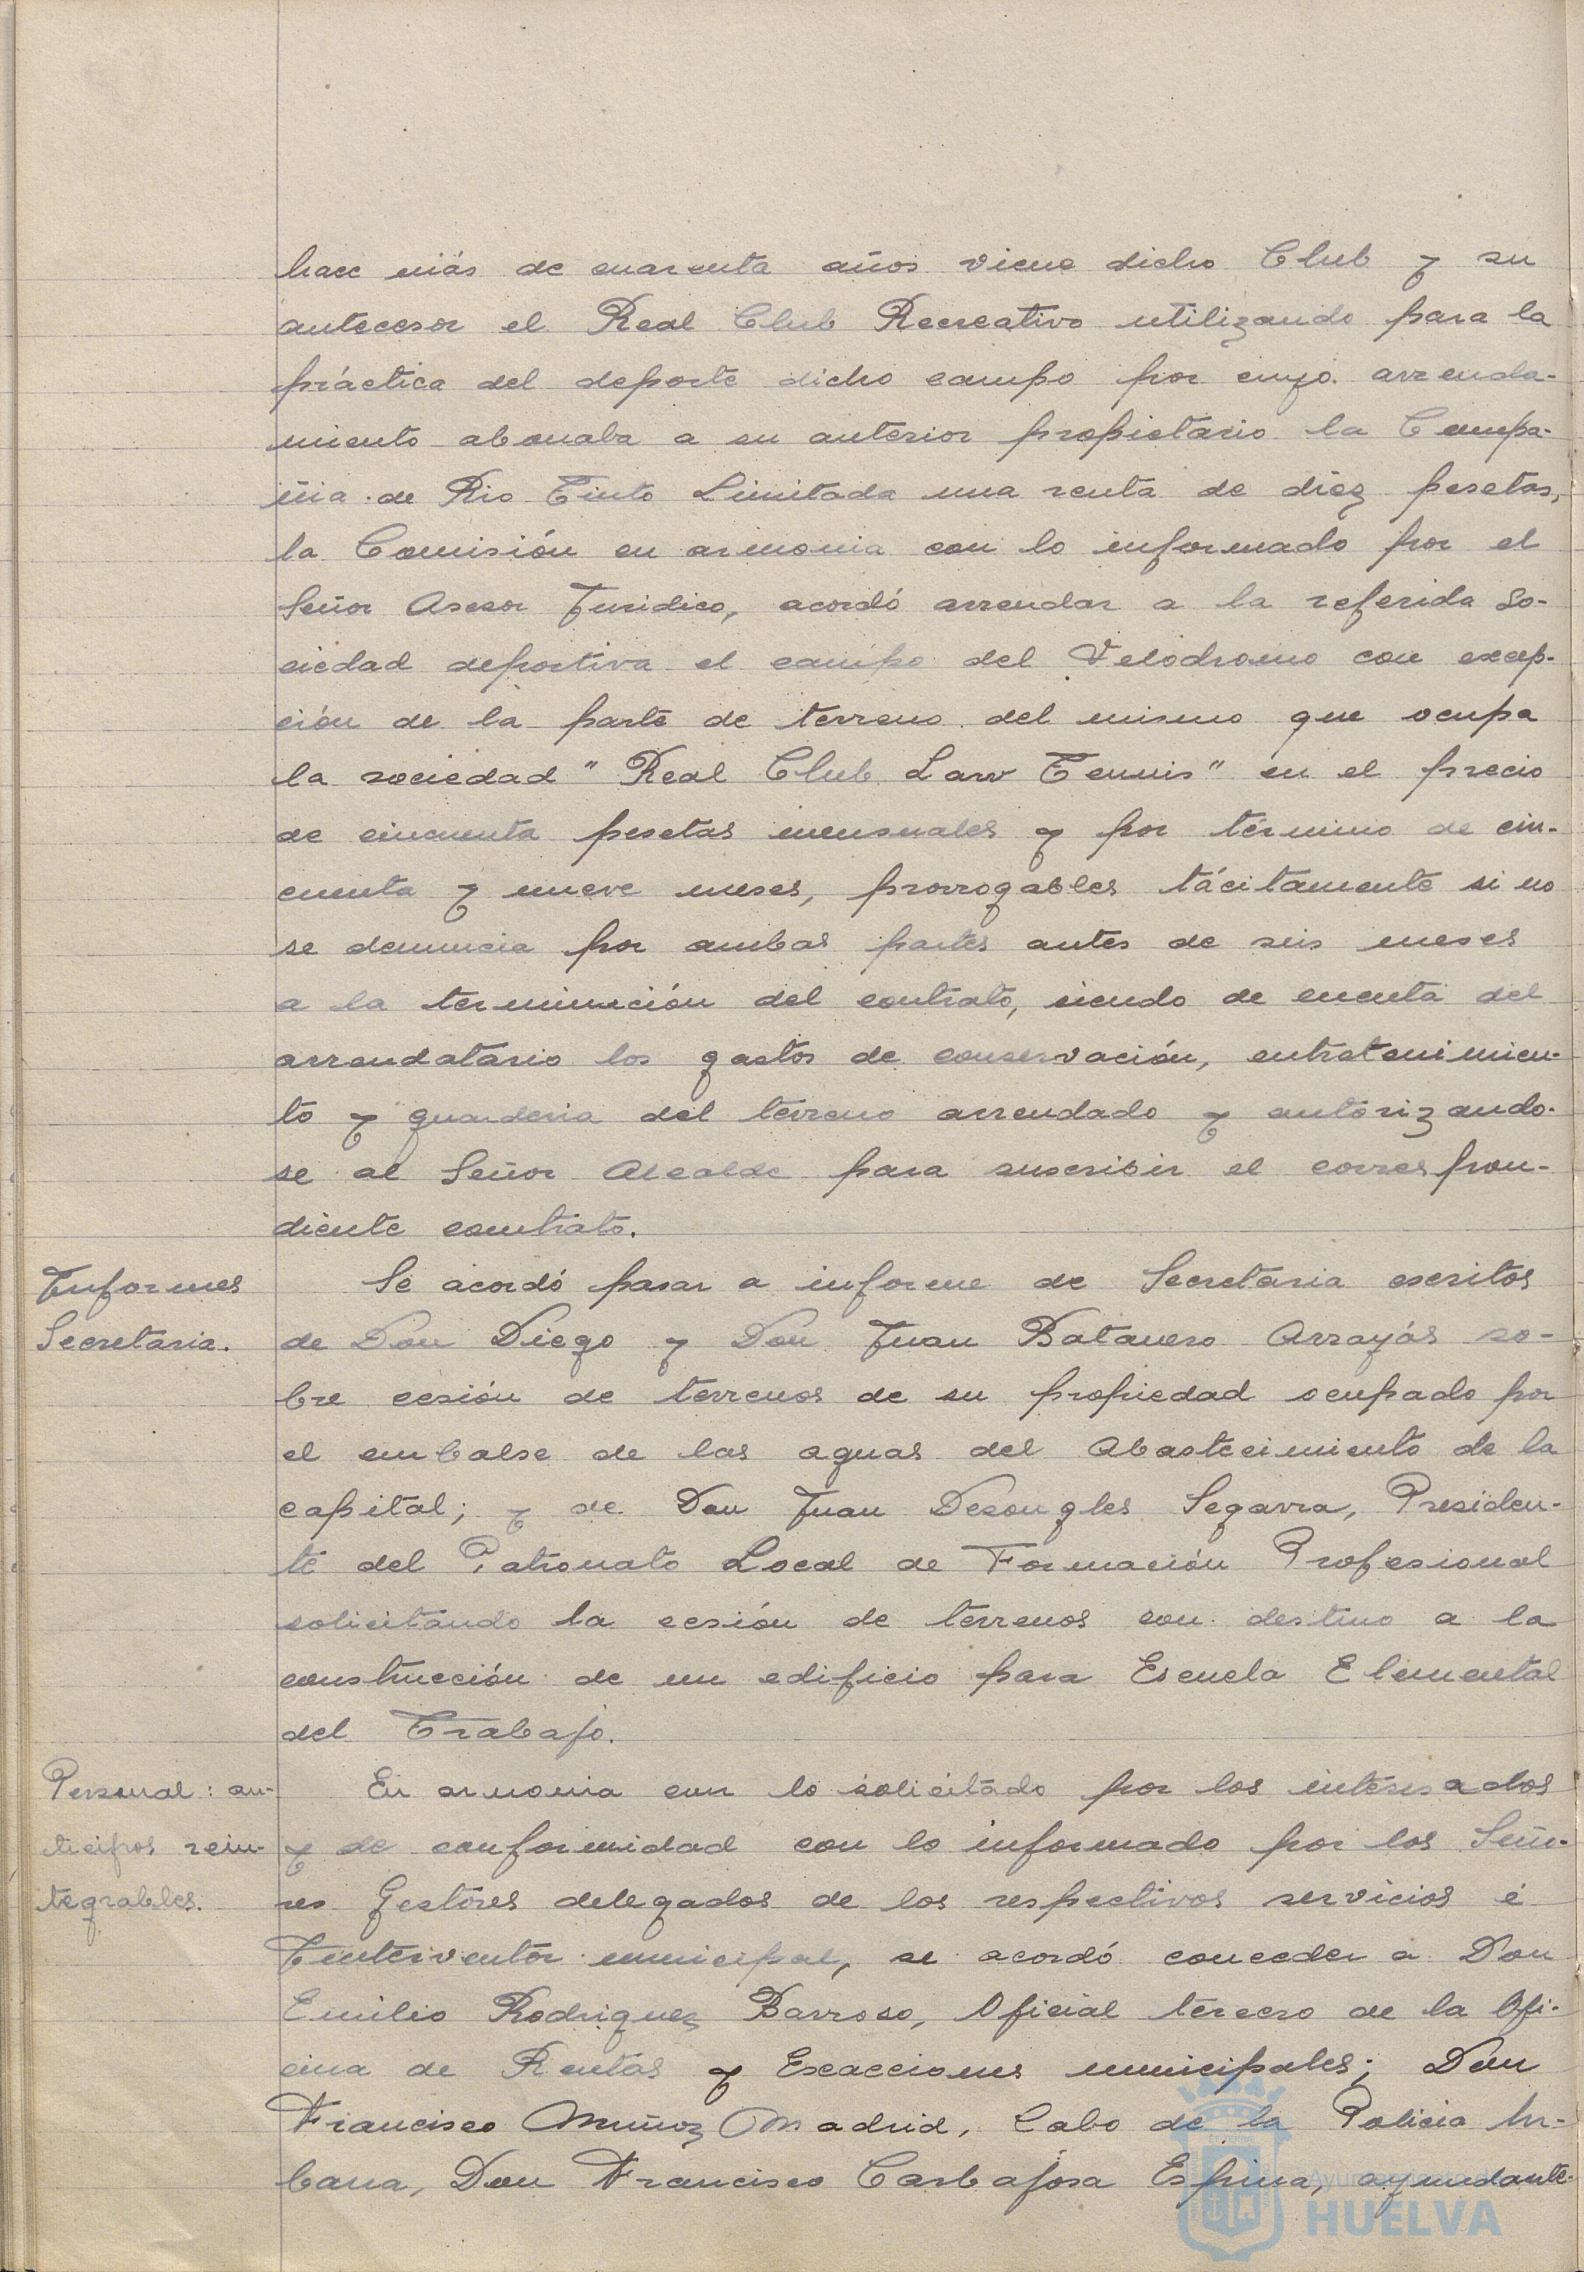 hace más de cuarenta años viene dicho Club y su
antecesor el Real Club Recreativo utilizando para la
práctica del deporte dicho campo por cuyo arrenda-
miento abonaba a su anterior propietario la Compa-
ñia de Rio Tinto Limitada una renta de diez pesetas,
la Comisión en armonia con lo informado por el
Señor Asesor Juridico, acordó arrendar a la referida So-
ciedad deportiva el campo del Velodromo con excep-
ción de la parte de terreno del mismo que ocupa
la sociedad "Real Club Law Tennis" en el precio
de cincuenta pesetas mensuales y por término de cin-
cuenta y nueve meses, prorrogables tácitamente si no
se denuncia por ambas partes antes de seis meses
a la terminación del contrato, siendo de cuenta del
arrendatario los gastos de conservación, entretenimien-
to y guarderia del terreno arrendado y autorizando-
se al Señor Alcalde para suscribir el correspon-
diente contrato.
Informes
Secretaria.
Se acordó pasar a informe de Secretaria escritos
de Don Diego y Don Juan Batanero Arrayás so-
bre cesión de terrenos de su propiedad ocupado por
el embalse de las aguas del Abastecimiento de la
capital; y de Don Juan Desongles Segarra, Presiden-
te del Patronato Local de Formación Profesional
solicitando la cesión de terrenos con destino a la
construcción de un edificio para Escuela Elemental
del Trabajo.
Personal: an-
ticipos rein-
tegrables.
En armonia con lo solicitado por los interesados
y de conformidad con lo informado por los Seño-
res Gestores delegados de los respectivos servicios é
Interventor municipal, se acordó conceder a Don
Emilio Rodriguez Barroso, Oficial tercero de la Ofi-
cina de Rentas y Exacciones municipales; Don
Francisco Muñoz Madrid, Cabo de la Policia Ur-
bana, Don Francisco Carbajosa Espina, ayudante-
Ayuntamiento de
HUELVA